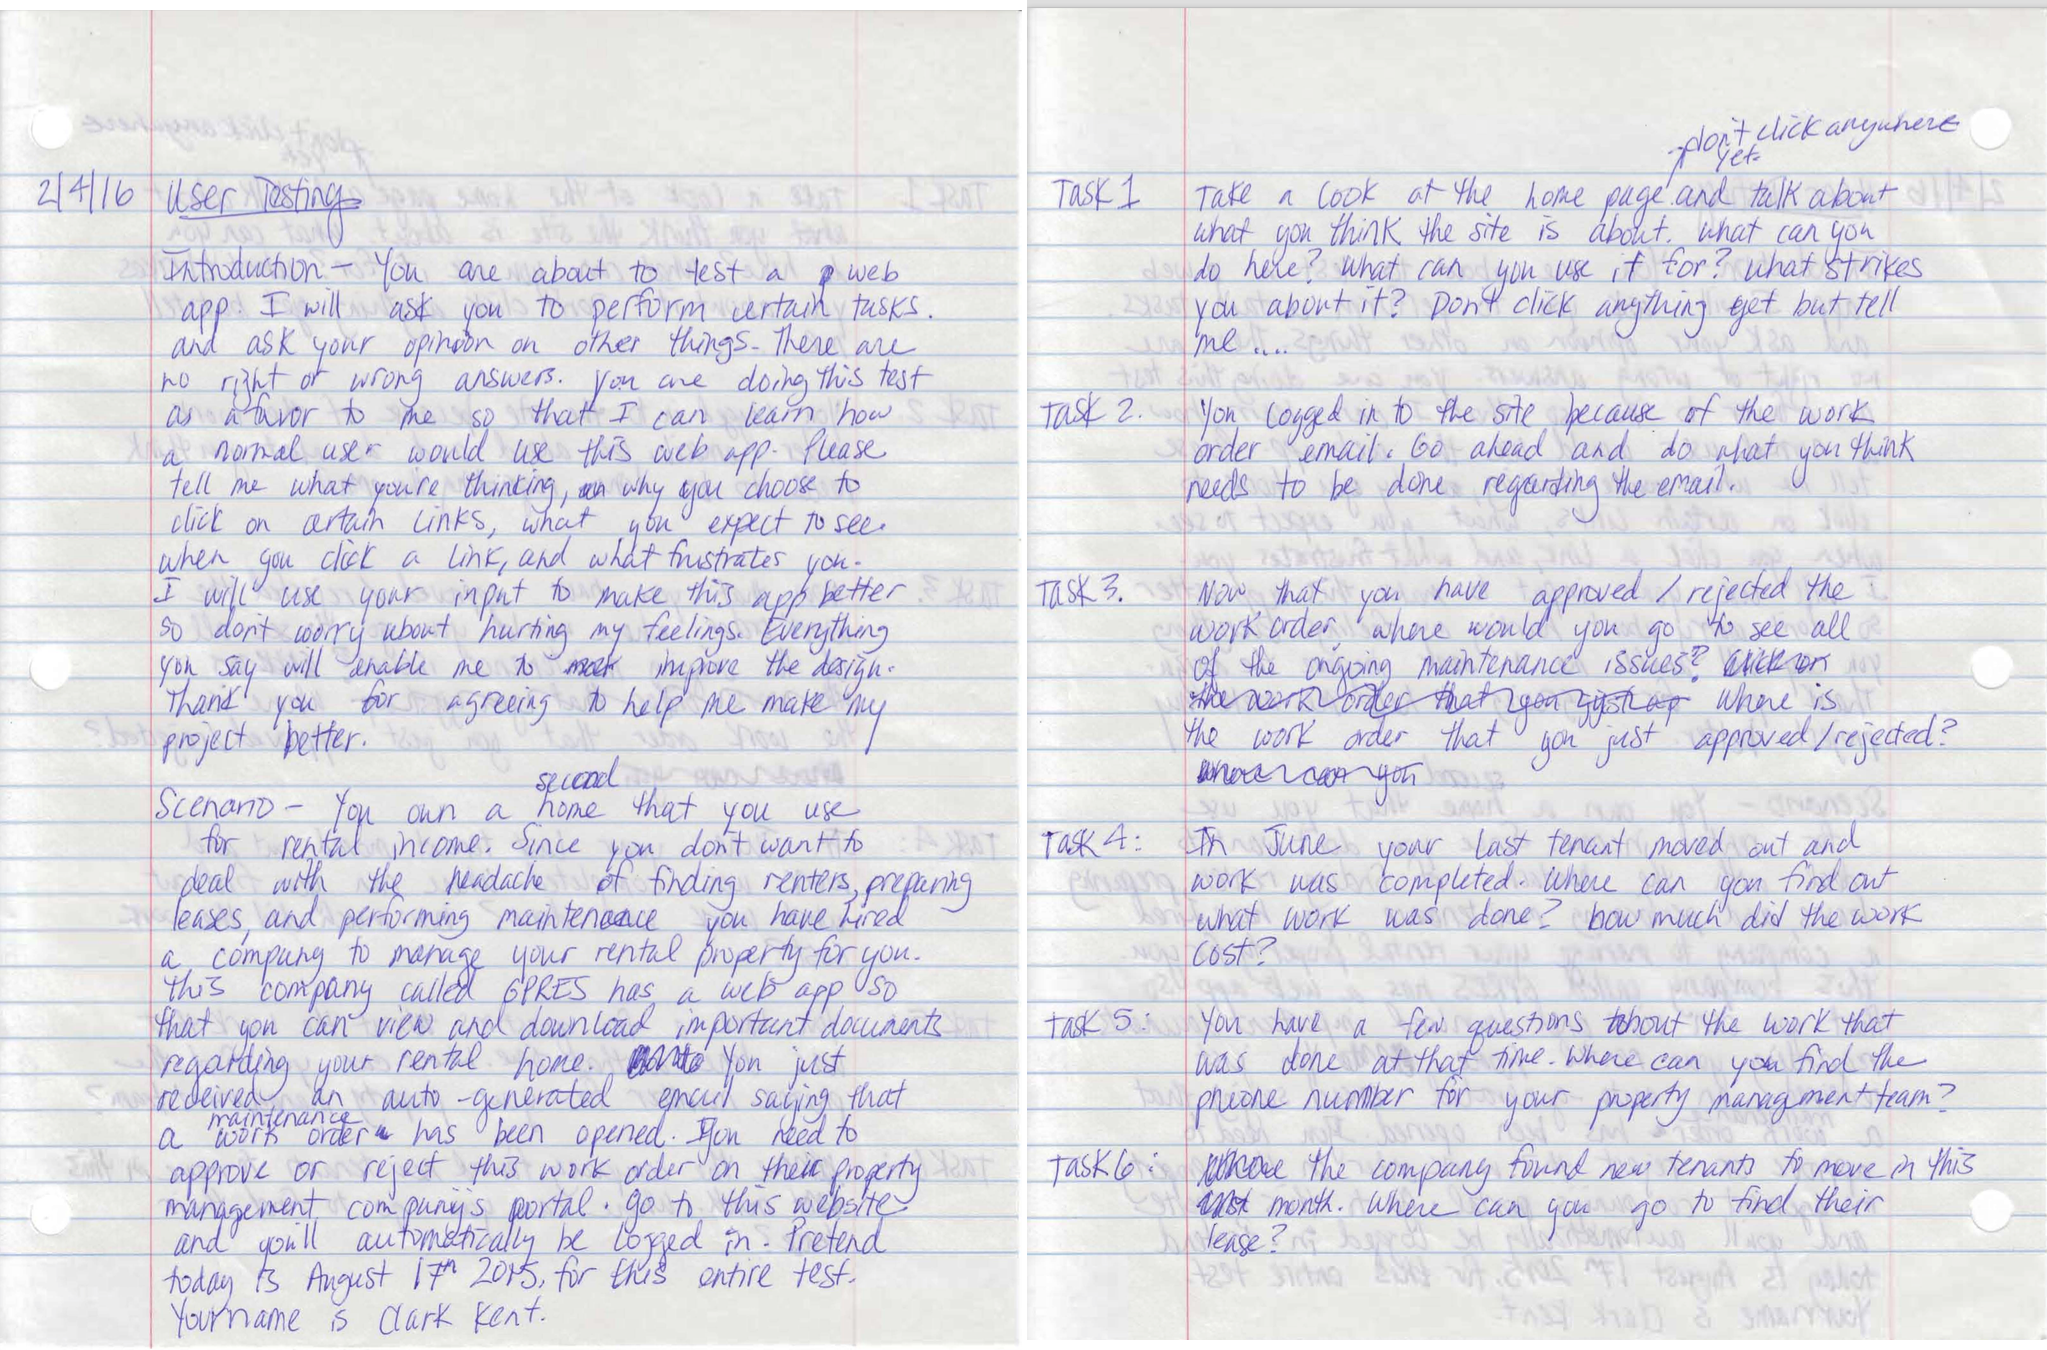 2/4/16 User Testing
Introduction - You are about to test a web
app. I will ask you to perform certain tasks.
and ask your opinion on other things. There are
no right or wrong answers. You are doing this test
as a favor to me so that I can learn how
a normal user would use this web app. Please
tell me what you're thinking, why you choose to
click on certain links, what you expect to see
when you click a link, and what frustrates you.
I will use your input to make this app better
so don't worry about hurting my feelings. Everything
you say will enable me to improve the design.
Thank you for agreeing to help me make my
project better.
second
Scenario - You own a home that you use
for rental income. Since you don't want to
deal with the headache of finding renters, preparing
leases, and performing maintenance you have hired
a company to manage your rental property for you.
This company called GPRES has a web app so
that you can view and download important documents
regarding your rental home. You just
received an auto-generated email saying that
maintenance
a work order has been opened. You need to
approve or reject this work order on their property
management company's portal. Go to this website
and you'll automatically be logged in. Pretend
today is August 17th 2015, for this entire test.
Your name is Clark Kent.
don't click anywhere
yet
Task 1 Take a look at the home page and talk about
what you think the site is about. What can you
do here? What can you use it for? What strikes
you about it? Don't click anything yet but tell
me ....
Task 2. You logged in to the site because of the work
order email. Go ahead and do what you think
needs to be done regarding the email.
Task 3. Now that you have approved / rejected the
work order, where would you go to see all
of the ongoing maintenance issues? Click on
the work order that you just Where is
the work order that you just approved / rejected?
where can you
Task 4: In June your last tenant moved out and
work was completed. Where can you find out
what work was done? how much did the work
cost?
Task 5: You have a few questions about the work that
was done at that time. Where can you find the
phone number for your property management team?
Task 6: The company found new tenants to move in this
month. Where can you go to find their
lease?